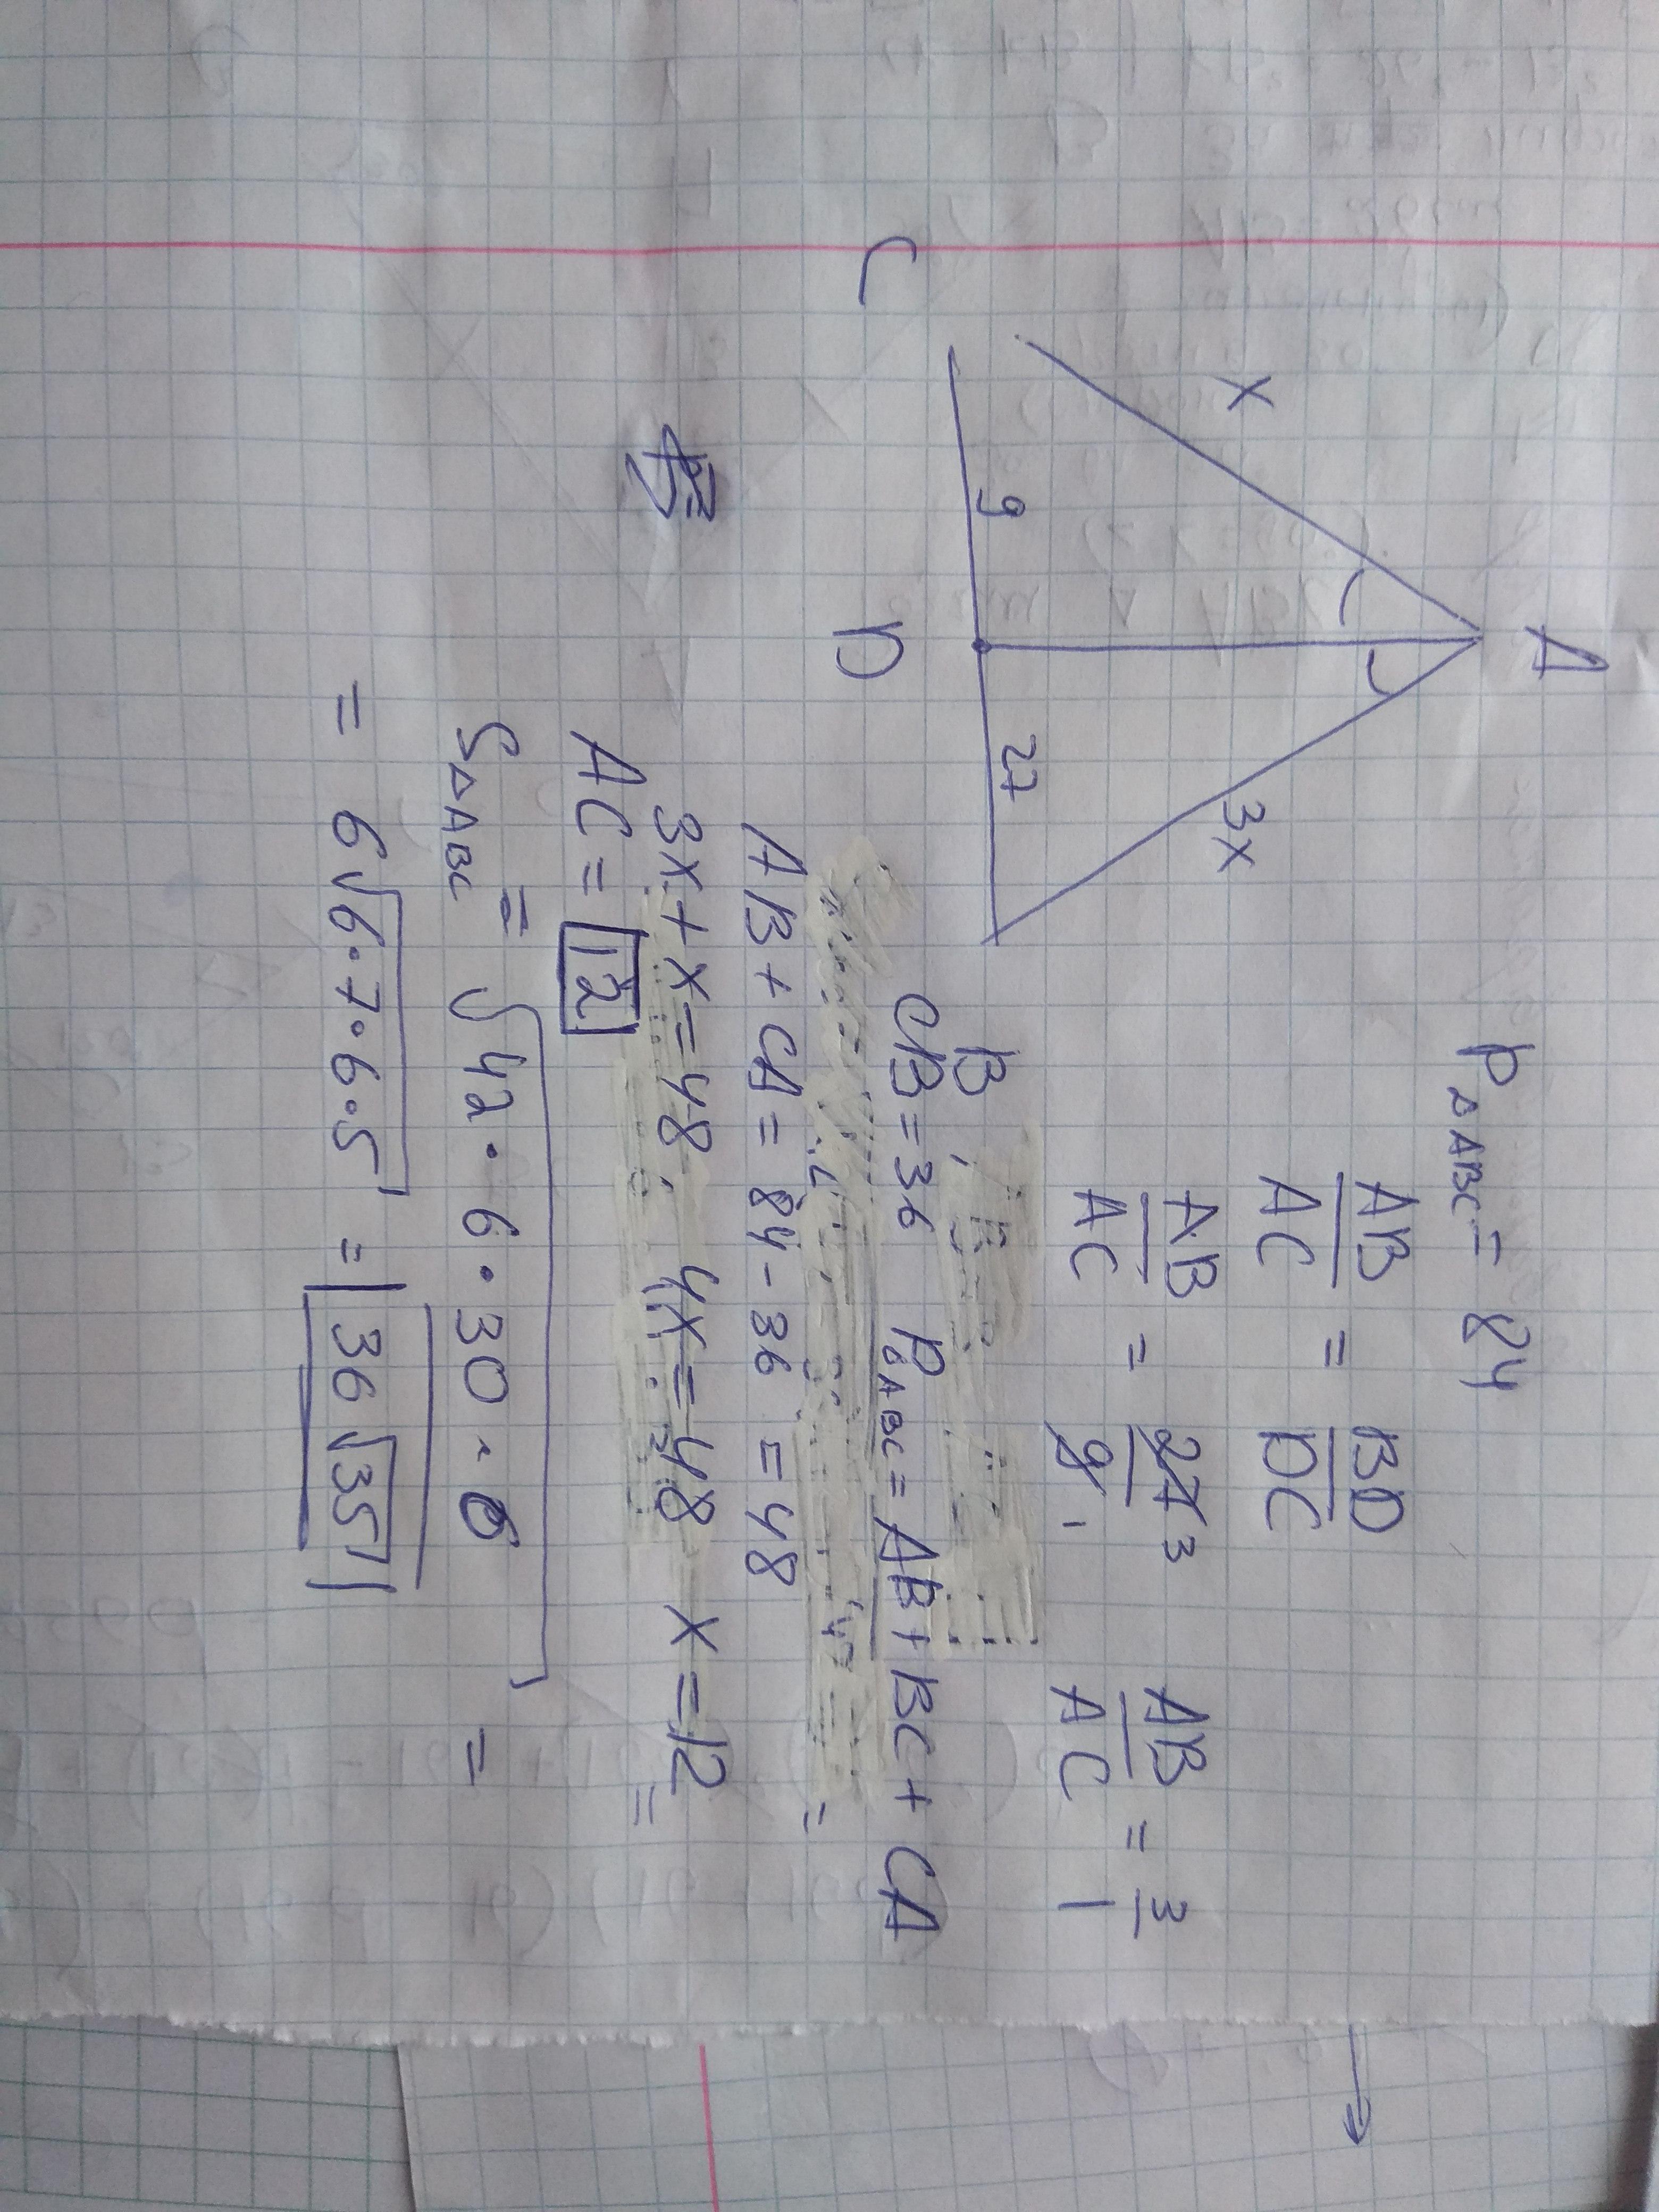 P△ABC = 84
A
x
3x
9
27
C
D
B
AB/AC = BD/DC
AB/AC = 27 3/9 1
AB/AC = 3/1
CB = 36 P△ABC = AB + BC + CA
AB + CA = 84 - 36 = 48
3x + x = 48, 4x = 48 x = 12
AC = 12
S△ABC = √42 · 6 · 30 · 6 =
= 6√6 · 7 · 6 · 5 = 36√35